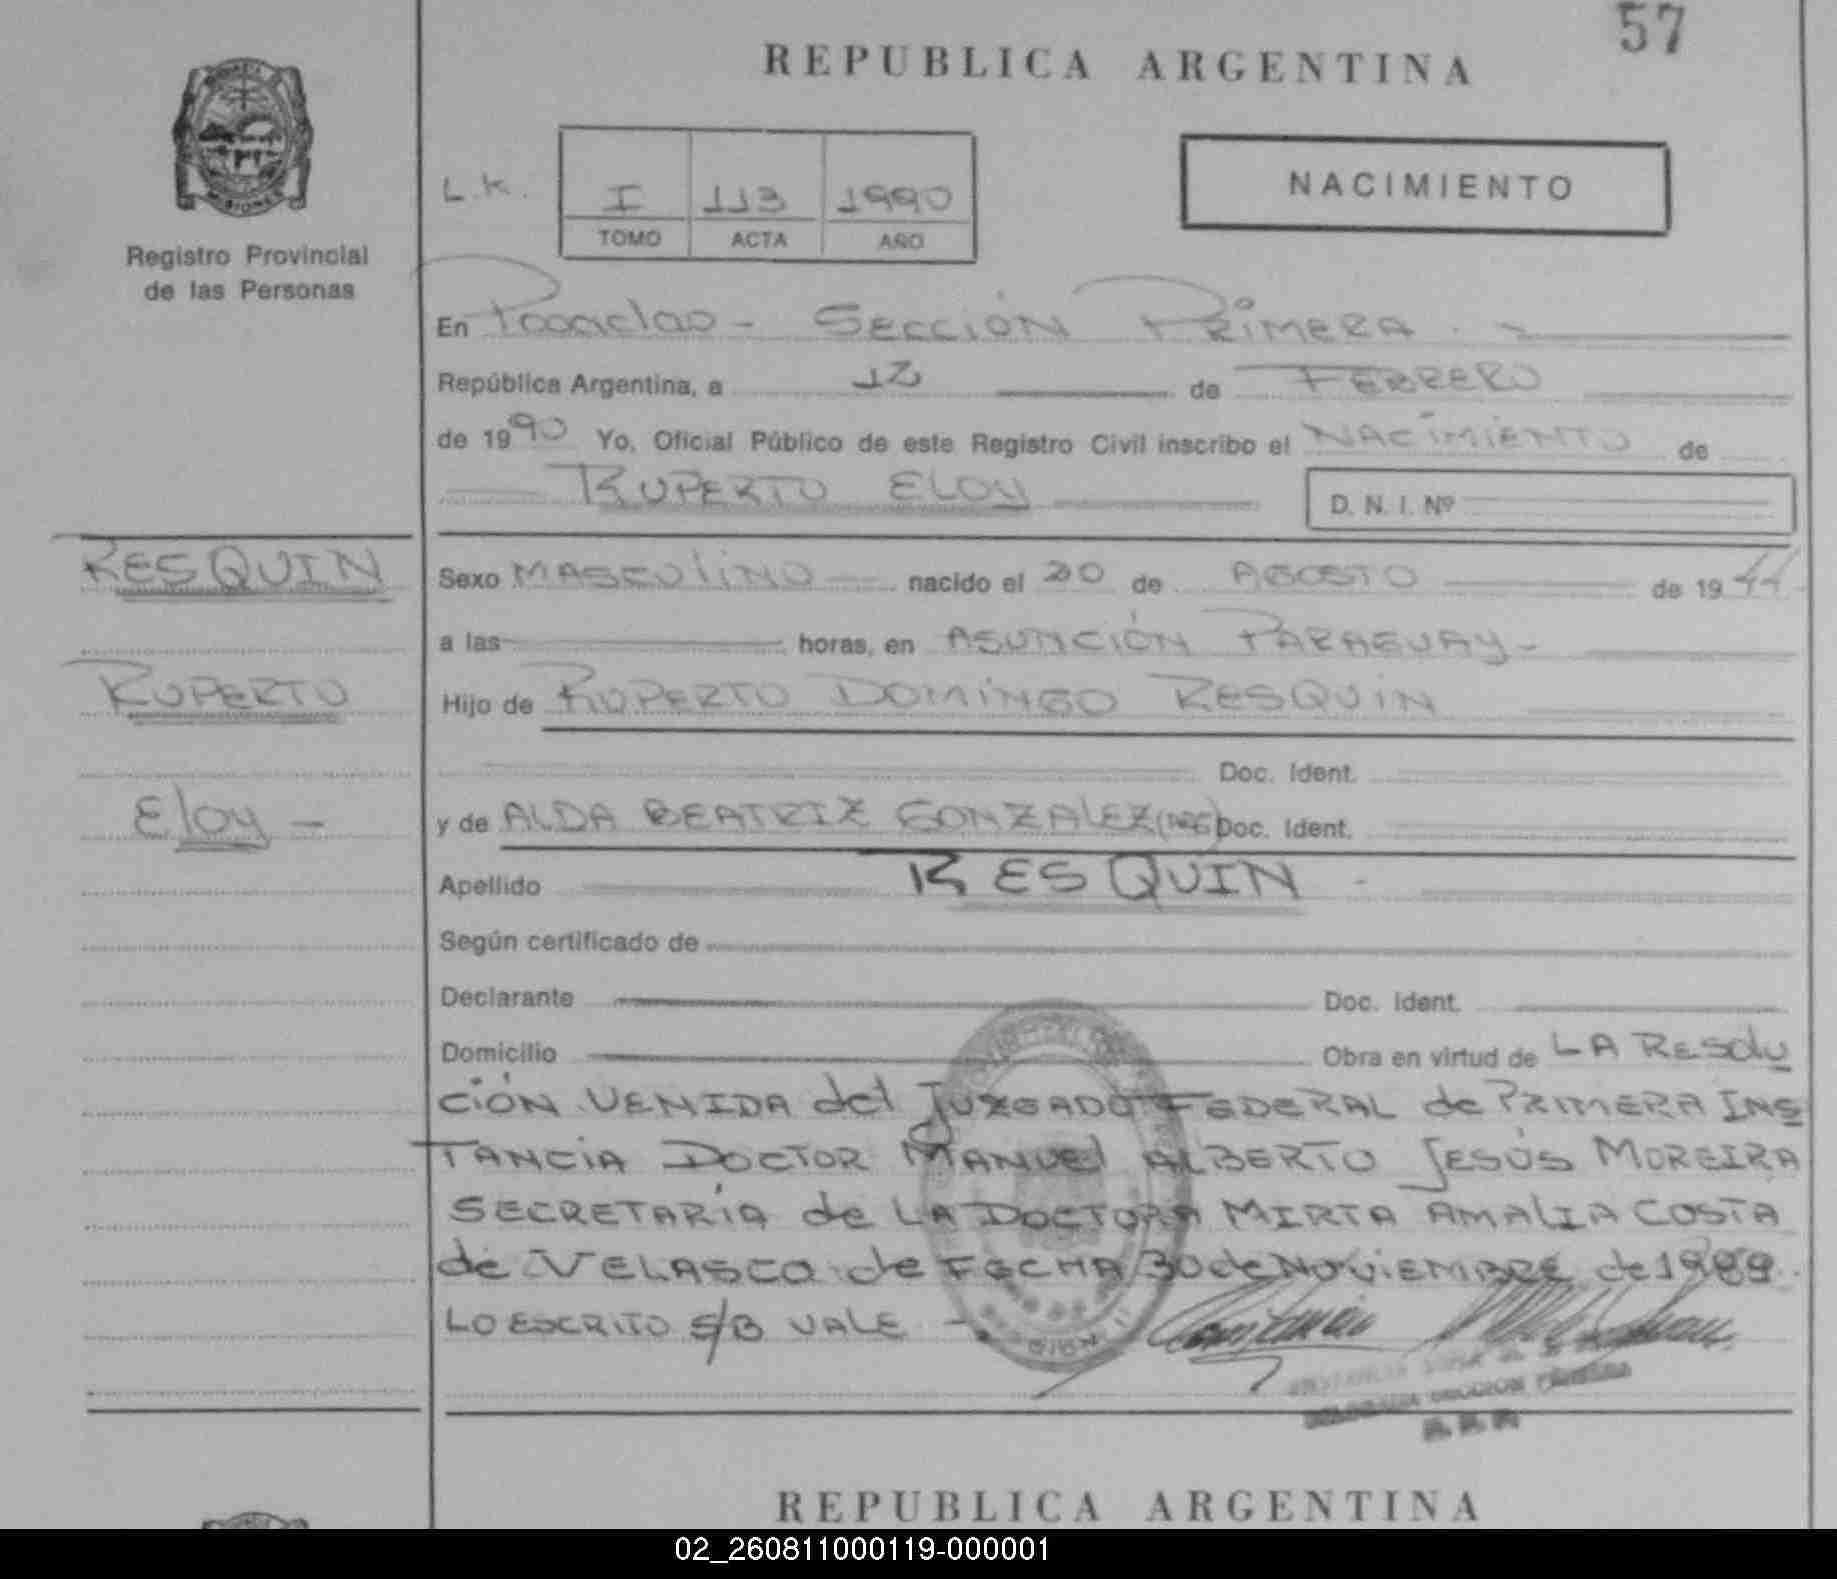 57
REPUBLICA ARGENTINA
L.K.
I 113 1990
TOMO ACTA AÑO
NACIMIENTO
MISIONES
Registro Provincial
de las Personas
En Posadas - SECCIÓN PRIMERA . -
República Argentina, a 12 de FEBRERO
de 1990 Yo, Oficial Público de este Registro Civil inscribo el NACIMIENTO de
RUPERTO ELOY D. N. I. Nº
RESQUIN
Sexo MASCULINO nacido el 20 de AGOSTO de 1944
a las horas, en ASUNCIÓN PARAGUAY -
RUPERTO
Hijo de RUPERTO DOMINGO RESQUIN
Doc. Ident.
ELOY -
y de ALDA BEATRIZ GONZALEZ (ARG) Doc. Ident.
Apellido RESQUIN -
Según certificado de
Declarante Doc. Ident.
Domicilio Obra en virtud de LA RESOLU
CIÓN VENIDA del JUZGADO FEDERAL de PRIMERA INS
TANCIA DOCTOR MANUEL ALBERTO JESÚS MOREIRA
SECRETARÍA de LA DOCTORA MIRTA AMALIA COSTA
de VELASCO de FECHA 30 de NOVIEMBRE de 1989.
LO ESCRITO S/B VALE -
SECCION PRIMERA
REPUBLICA ARGENTINA
02_260811000119-000001